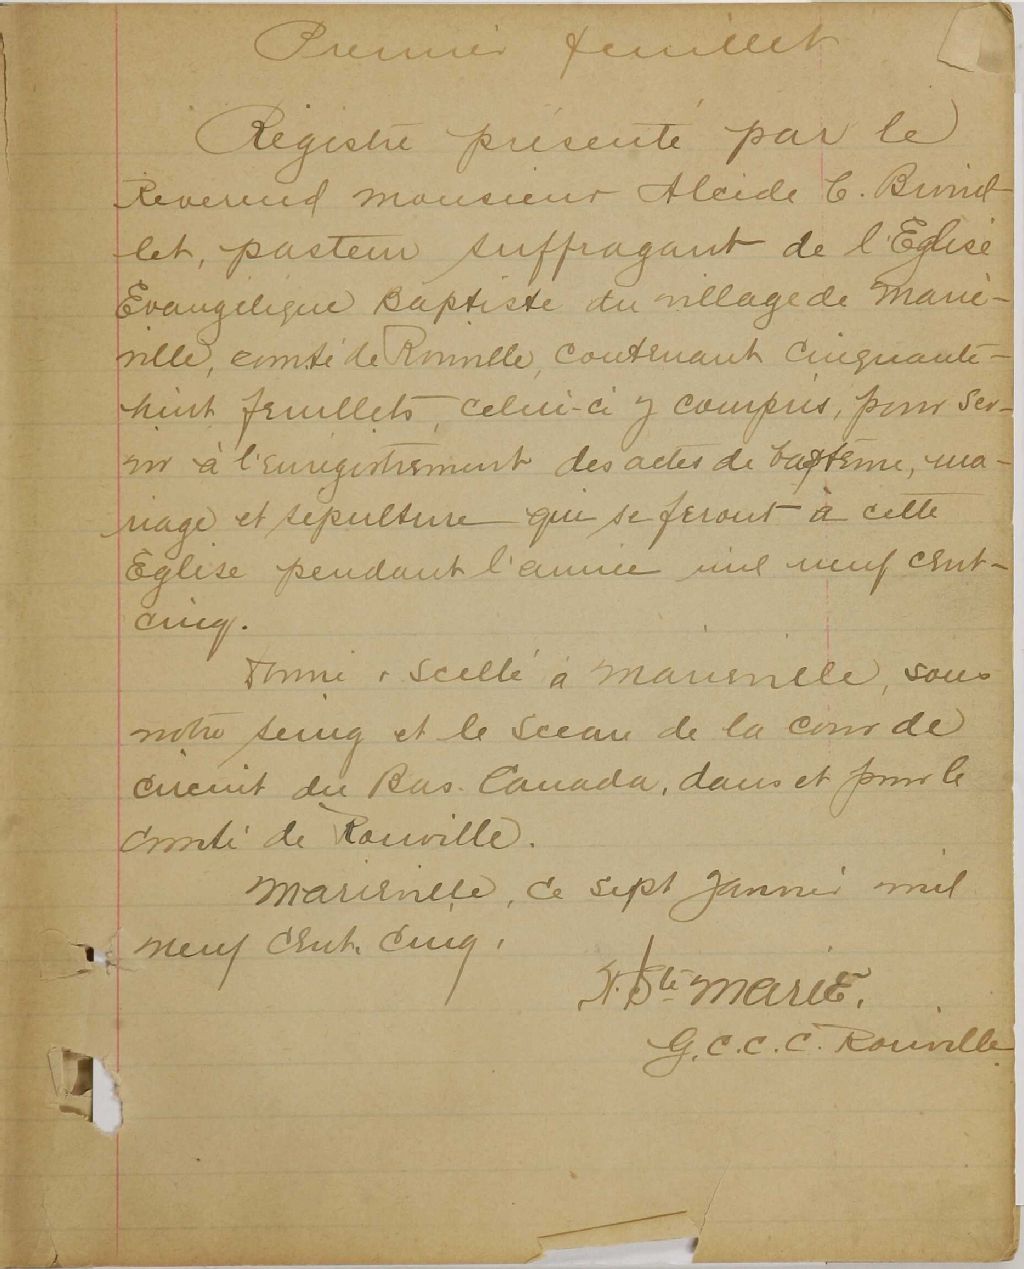 Premier feuillet
Régistre présenté par le
Reverend monsieur Alcide C.
let, pasteur suffragant de l'Église
Evangélique Baptiste du village de Marie-
ville, comté de Rouville, contenant cinquante-
huit feuillets, celui-ci y compris, pour ser-
vir à l'enrégistrement des actes de baptême, ma-
riage et sépulture qui se feront à cette
Église pendant l'année mil neuf cent-
cinq.
Donné & scellé à Marieville, sous
notre seing et le sceau de la cour de
circuit du Bas-Canada, dans et pour le
comté de Rouville.
Marieville, ce sept janvier mil
neuf cent-cinq.
Ste Marie.
G.C.C.C. Rouville